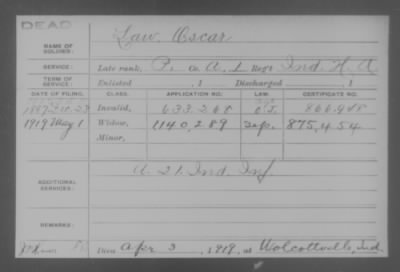 DEAD
NAME OF SOLDIER: Law Oscar
SERVICE: Late rank, P. Co. A, 1 Reg't Ind. H. A
TERM OF SERVICE: Enlisted , 1 Discharged , 1
DATE OF FILING. CLASS. APPLICATION NO. LAW. CERTIFICATE NO.
Invalid, 633.268
1919 May 1 Widow, 1140.289 875,454
Minor,
ADDITIONAL SERVICES: A. 21. Ind. Inf
REMARKS:
Died Apr 3 , 1919, at Wolcottville, Ind.